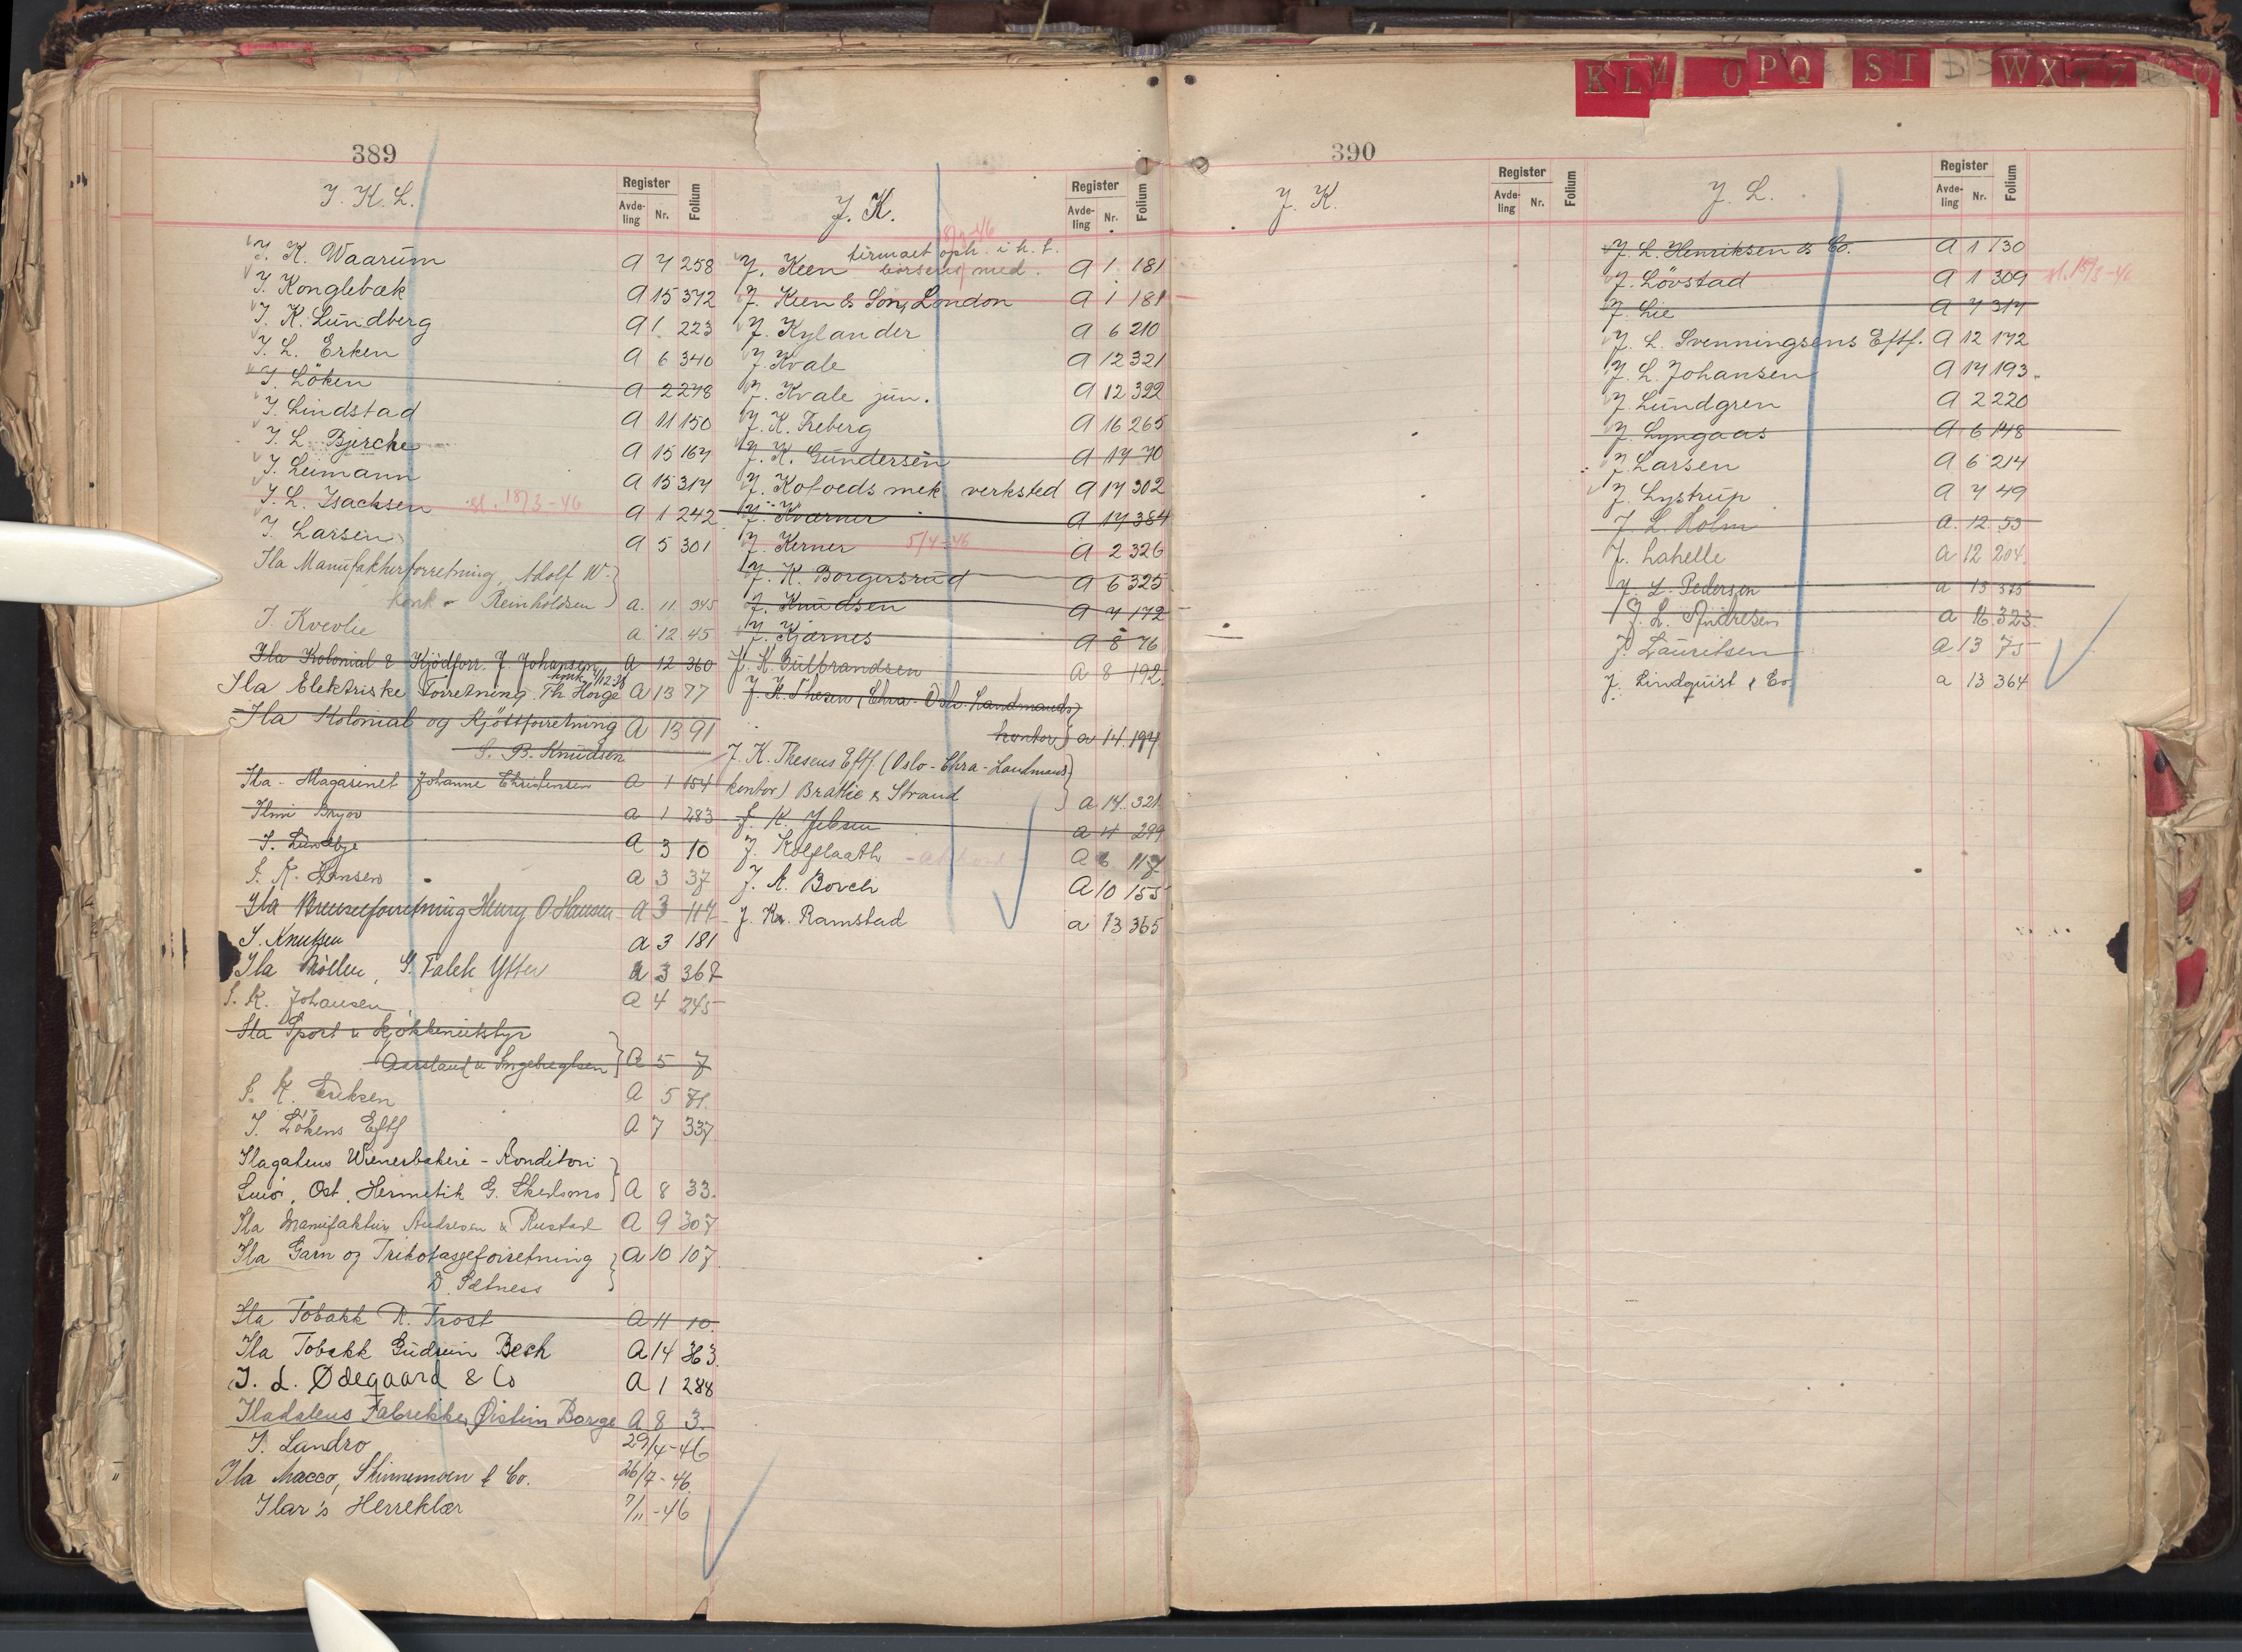 389
I. K. L.
Register
Avde-
ling
Nr.
Folium
I. K. Waarum A 7 258
I. Konglebæk A 15 372
I. K. Lundberg A 1 223
I. L. Erken A 6 340
I. Löken A 2 278
I. Lindstad A 11 150
I. L. Bjercke A 15 167
I. Leimann A 15 317
I. L. Isachsen sl. 18/3-46 A 1 242
I. Larsen A 5 301
Ila Manufakturforretning, Adolf W.
konk Reinholdsen a. 11. 345
I. Kvevlie a 12 45
Ila Kolonial & Kjödforr. J. Johansen a 12 360
konk 1/12 38
Ila Elektriske Forretning Th. Horge A 13 77
Ila Kolonial og Kjöttforretning A 13 91
J. B. Knudsen
Ila-Magasinet Johanne Christensen a 1 154
a 1 283
I. Lundebye a 3 10
I. K. Hansen a 3 37
Ila Brenselforretning Henry O. Hansen a 3 117
I. Knutsen a 3 181
Ila Möllen, G. Falck Ytter a 3 367
I. K. Johansen a 4 245
Ila Sport & Kjökkenutstyr
Aarstand & Ingebregtsen a 5 7
I. K. Eriksen a 5 71.
I. Lökens Eftf A 7 337
Ilagatens Wienerbakeri - Konditori
Smör, Ost, Hermetik G. A 8 33.
Ila Manufaktur Andresen & Rustad A 9 307
Ila Garn og Trikotasjeforretning A 10 107.
D. Sætness
Ila Tobakk R. Frost A 11 10.
Ila Tobakk Gudrun Bech A 14 363.
I. L. Ødegaard & Co A 1 288
Iladalens Fabrikker, Øistein Borge A 8 3.
I. Landro 29/4-46
Ila Macco, Skinnemoen & Co. 26/7-46.
Ilar's Herreklær 7/11-46
J. K.
Register
Avde-
ling
Nr.
Folium
firmaet oph. i h. t.
J. Keen börsens med. A 1 181
J. Keen & Son, London A 1 181
J. Kylander A 6 210
J. Kvale A 12 321
J. Kvale jun. A 12 322
J. K. Freberg A 16 265
J. K. Gundersen A 17 70
J. Kofoeds mek. verksted A 17 302
J. Kværner A 17 384
J. Kerner 5/4-46 A 2 326
J. K. Borgersrud A 6 325
J. Knudsen A 7 172
J. Kjærnes A 8 76
J. K. Gulbrandsen A 8 192.
J. K. Thesen (Chra-Oslo Landmands
kontor) a 14. 194
J. K. Thesens Eftf. (Oslo-Chra-Landmands
kontor) Bratlie & Strand a 14. 321
J. K. Jebsen a 4 299
J. Kolflaath A 6 117
J. K. Borch A 10 155
J. Kr. Ramstad a 13 365
390
J. K.
Register
Avde-
ling
Nr.
Folium
J. L.
Register
Avde-
ling
Nr.
Folium
J. L. Henriksen & Co. A 1 130
J. Lövstad A 1 309 sl. 18/3-46
J. Lie A 7 317
J. L. Svenningsens Eftf. A 12 172
J. L. Johansen A 17 193.
J. Lundgren A 2 220
J. Lyngaas A 6 148
J. Larsen A 6 214
J. Lystrup A 7 49
J. L. Holm a. 12. 53
J. Lahelle a 12 204.
J. L. Pedersen a 13 375
J. L. Andresen a 16. 323.
J. Lauritsen a 13 75
J. Lindquist & Co. a 13 364
K L M O P Q S T W X Z